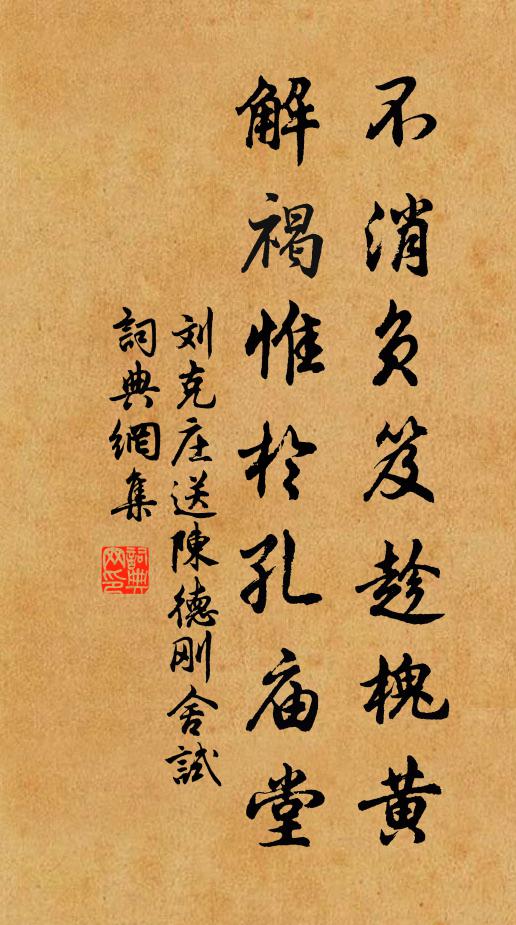 不消负笈趁槐黄
解褐惟於孔庙堂
刘克庄送陳德刚舍試
詞典網集
詞典网印